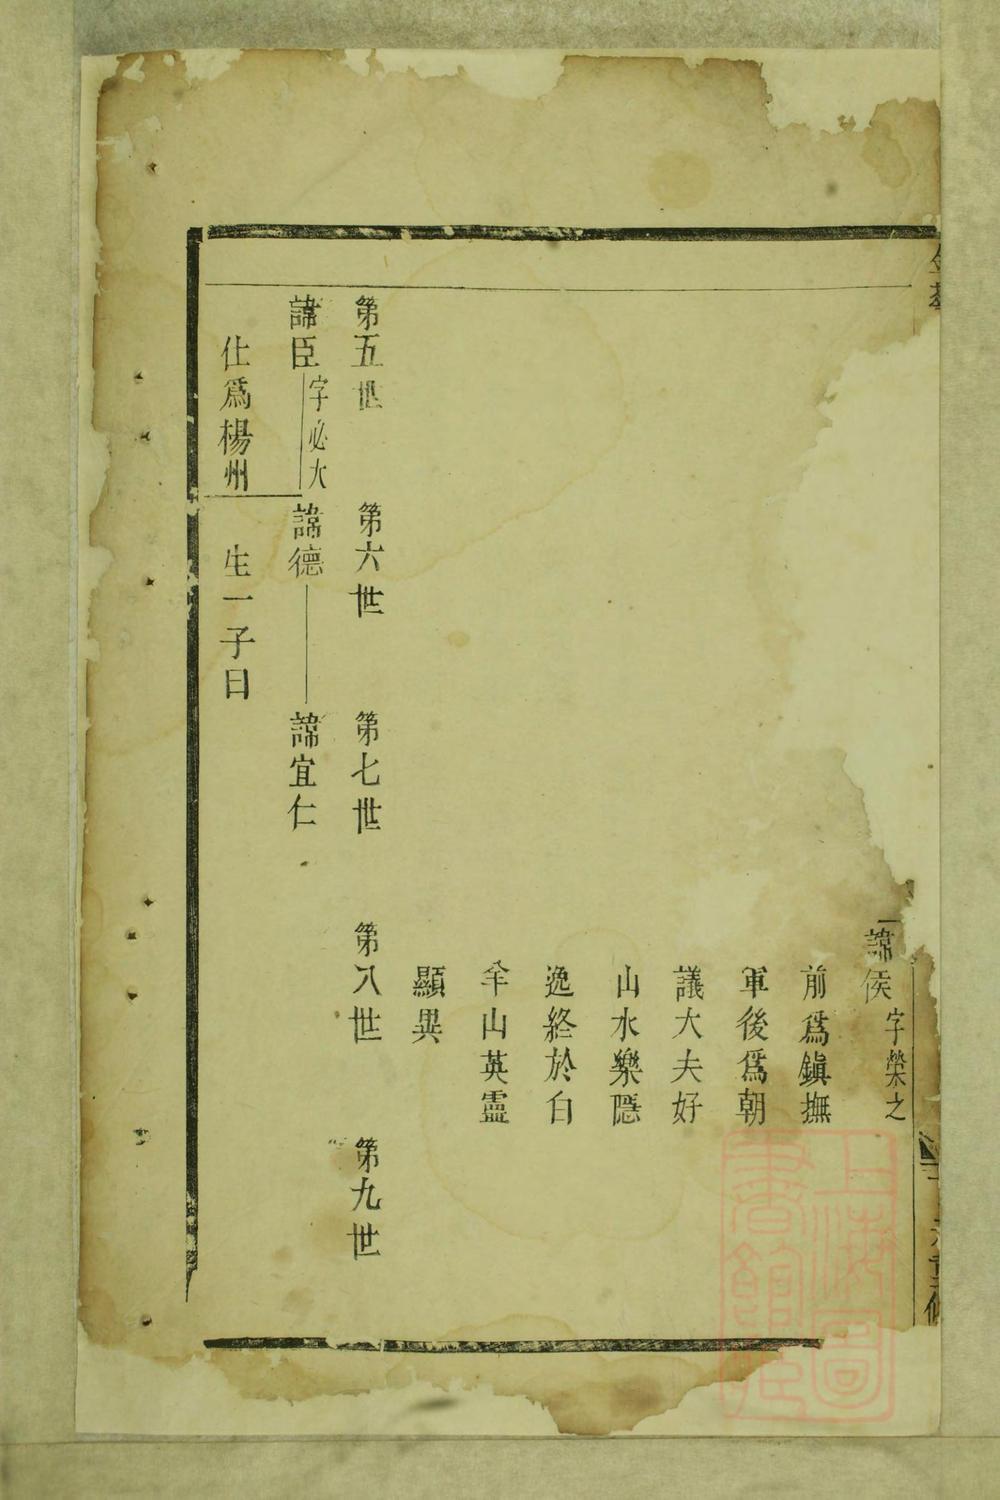 諱侯 字榮之
前爲鎭撫
軍後爲朝
議大夫好
山水樂隱
逸終於白
羊山英靈
顯異
第五世 第六世 第七世 第八世 第九世
諱臣 字必大 諱德 諱宜仁
仕爲楊州 生一子曰
上海圖書館藏